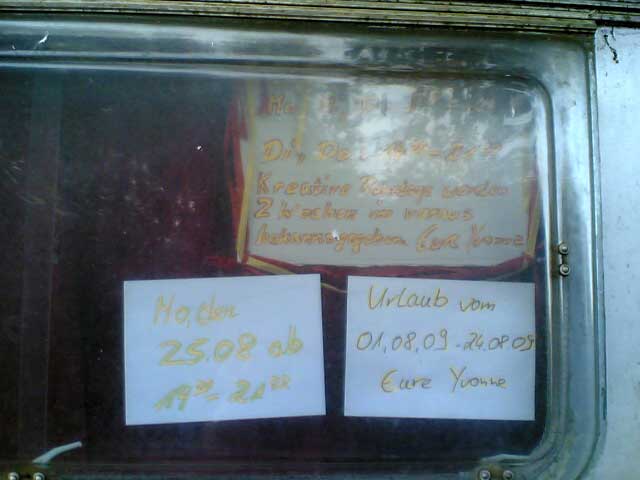 Di, Do. 14⁰⁰ - 21⁰⁰
Kreative werden
2 Wochen im voraus
bekanntgegeben Eure Yvonne
Mo, den
25.08 ab
14⁰⁰ - 21⁰⁰
Urlaub vom
01.08.09 - 24.08.09
Eure Yvonne